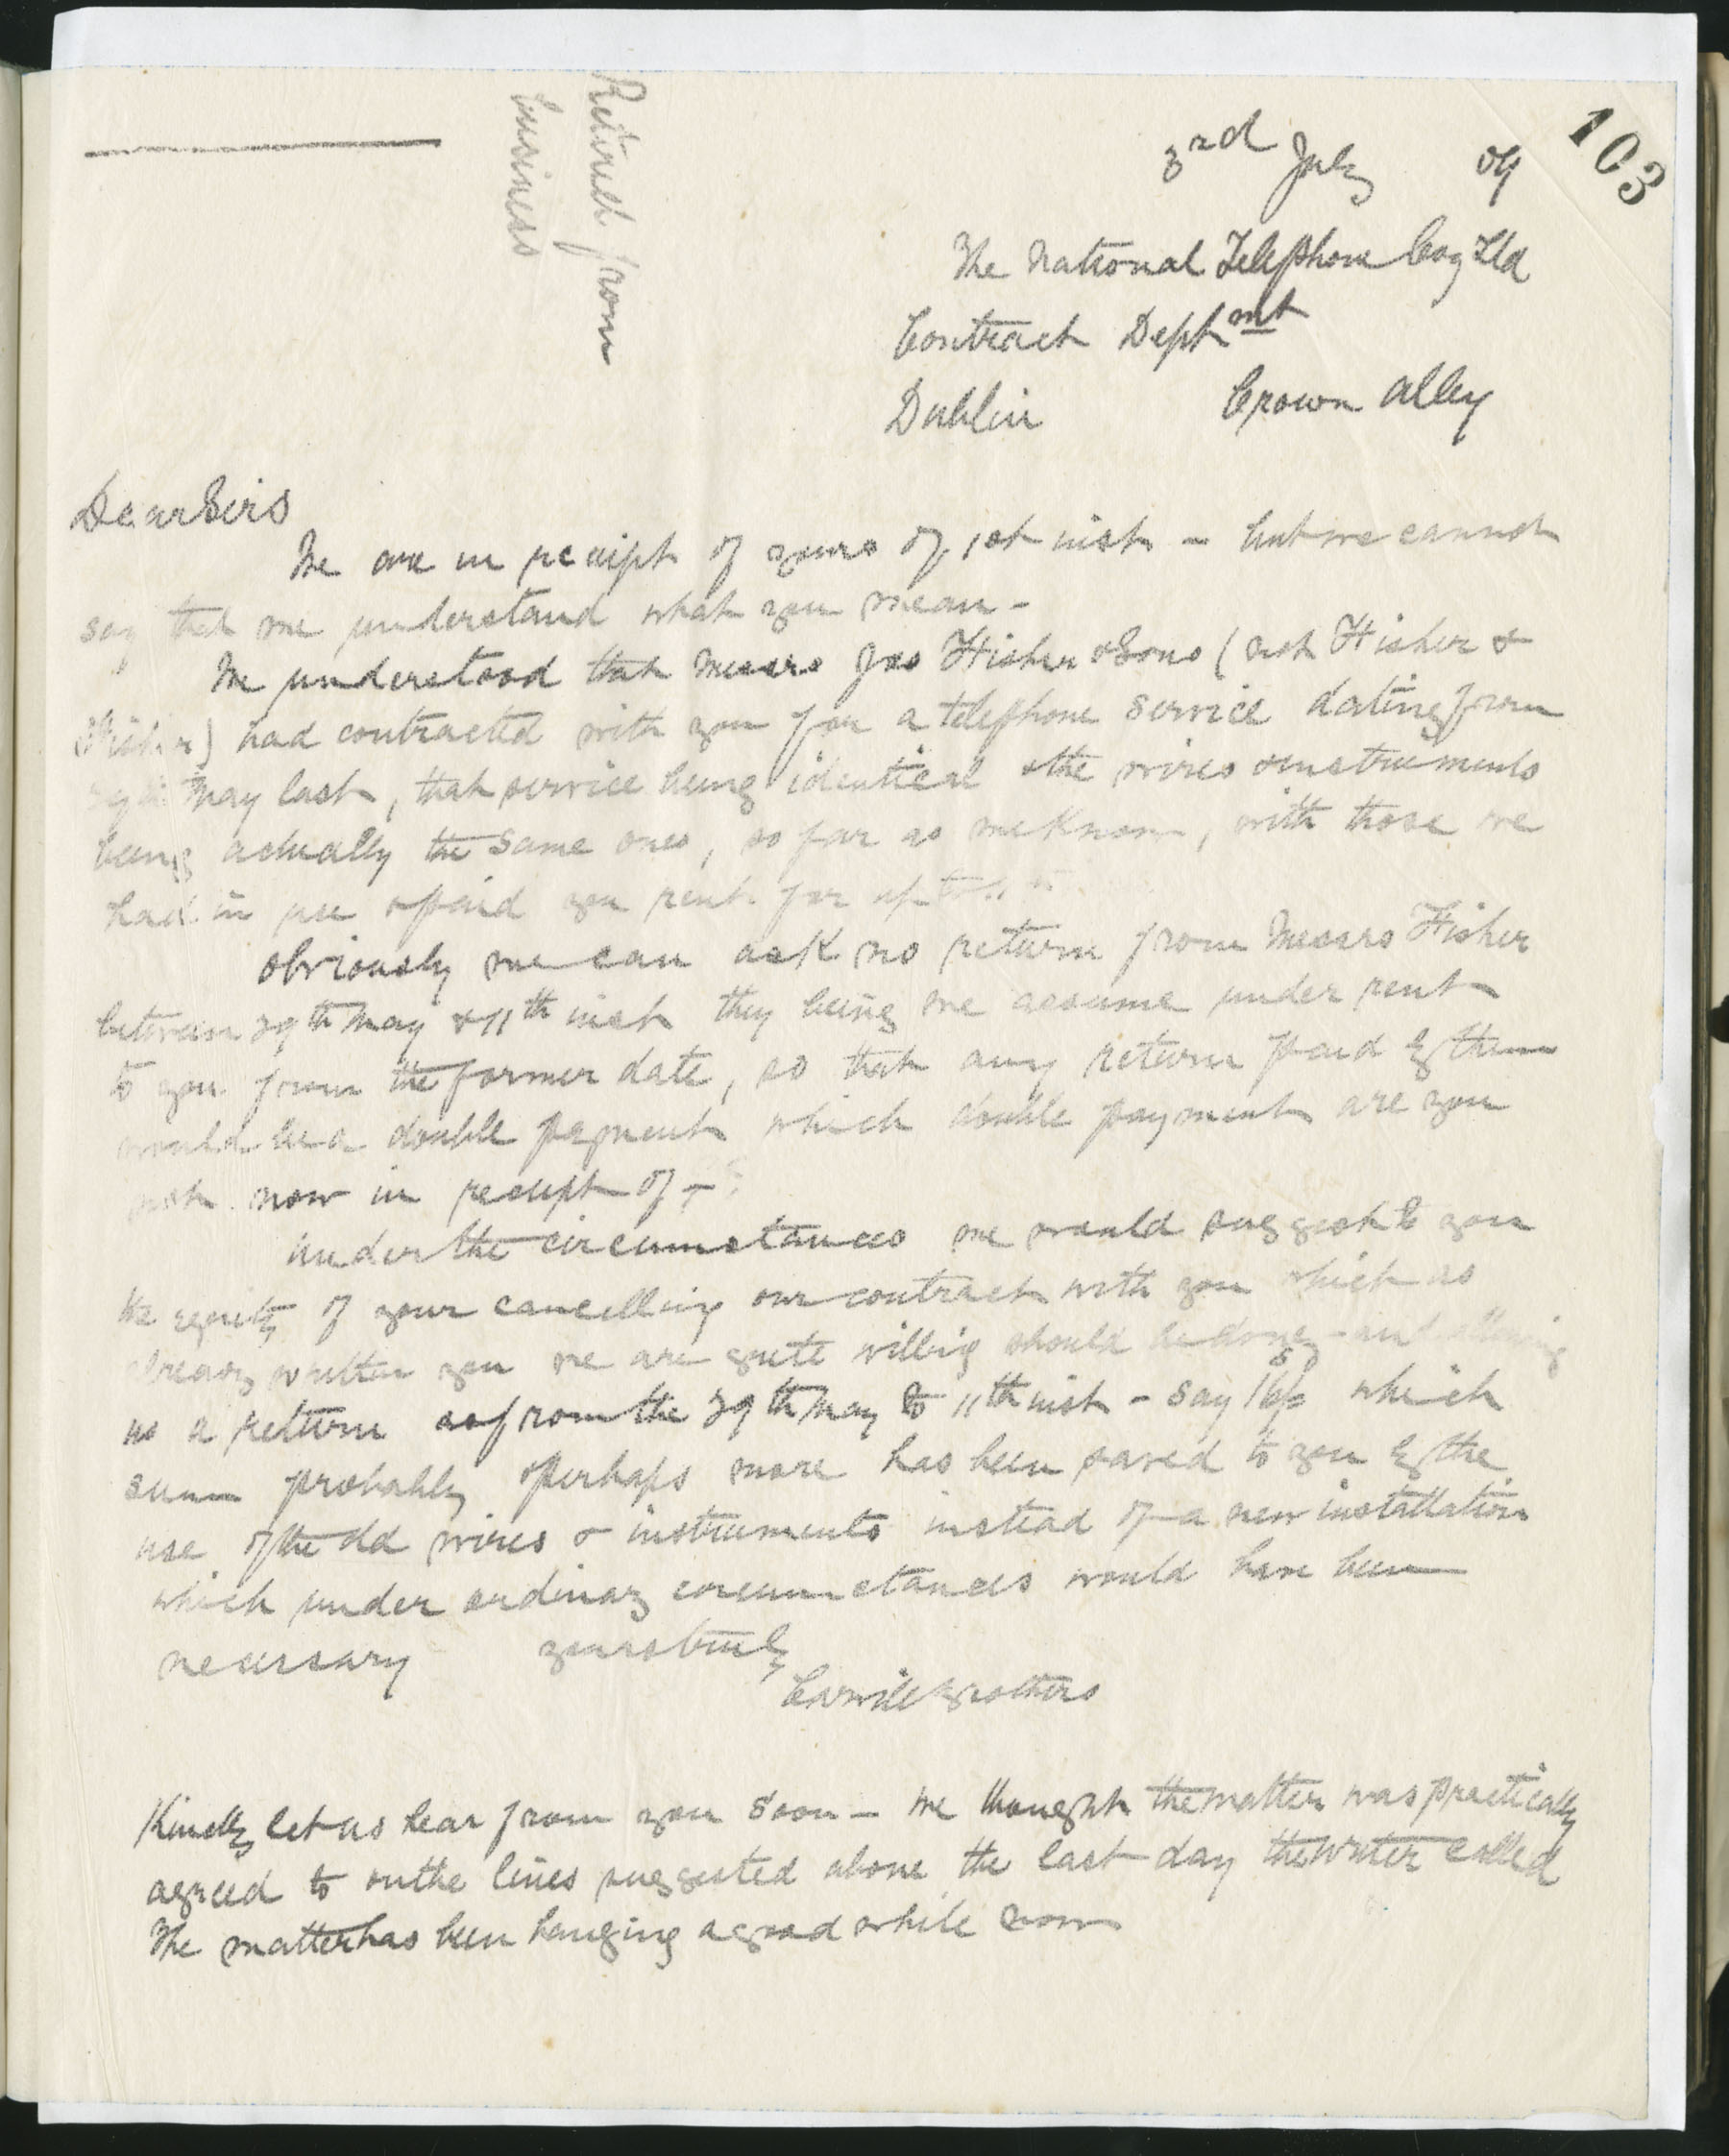 103
Retired from
business
3rd July 04
The National Telephone Coy Ltd
Contract Deptmt
Dublin Crown Alley
Dear Sirs
We are in receipt of yours of 1st inst - but we cannot
say that we understand what you mean -
We understood that Messrs Jas Fisher & Sons (not Fisher &
Fisher) had contracted with you for a telephone service dating from
May last, that service being identical & the wires & instruments
being actually the same ones, so far as we know, with those we
had in use & paid you rent for up to
Obviously we can ask no return from Messrs Fisher
between 29th May & 11th inst they being we assume under rent
to you from the former date, so that any return paid by them
would be a double payment which double payment are you
not now in receipt of -?
Under the circumstances we would suggest to you
the equity of your cancelling our contract with you which as
already written you we are quite willing should be done - and allowing
us a return as from the 29th May to 11th inst - say which
sum probably & perhaps more has been saved to you by the
use of the old wires & instruments instead of a new installation
which under ordinary circumstances would have been
necessary yours truly
Brothers
Kindly let us hear from you soon - we thought the matter was practically
agreed to on the lines suggested above the last day the writer called
The matter has been hanging a good while now